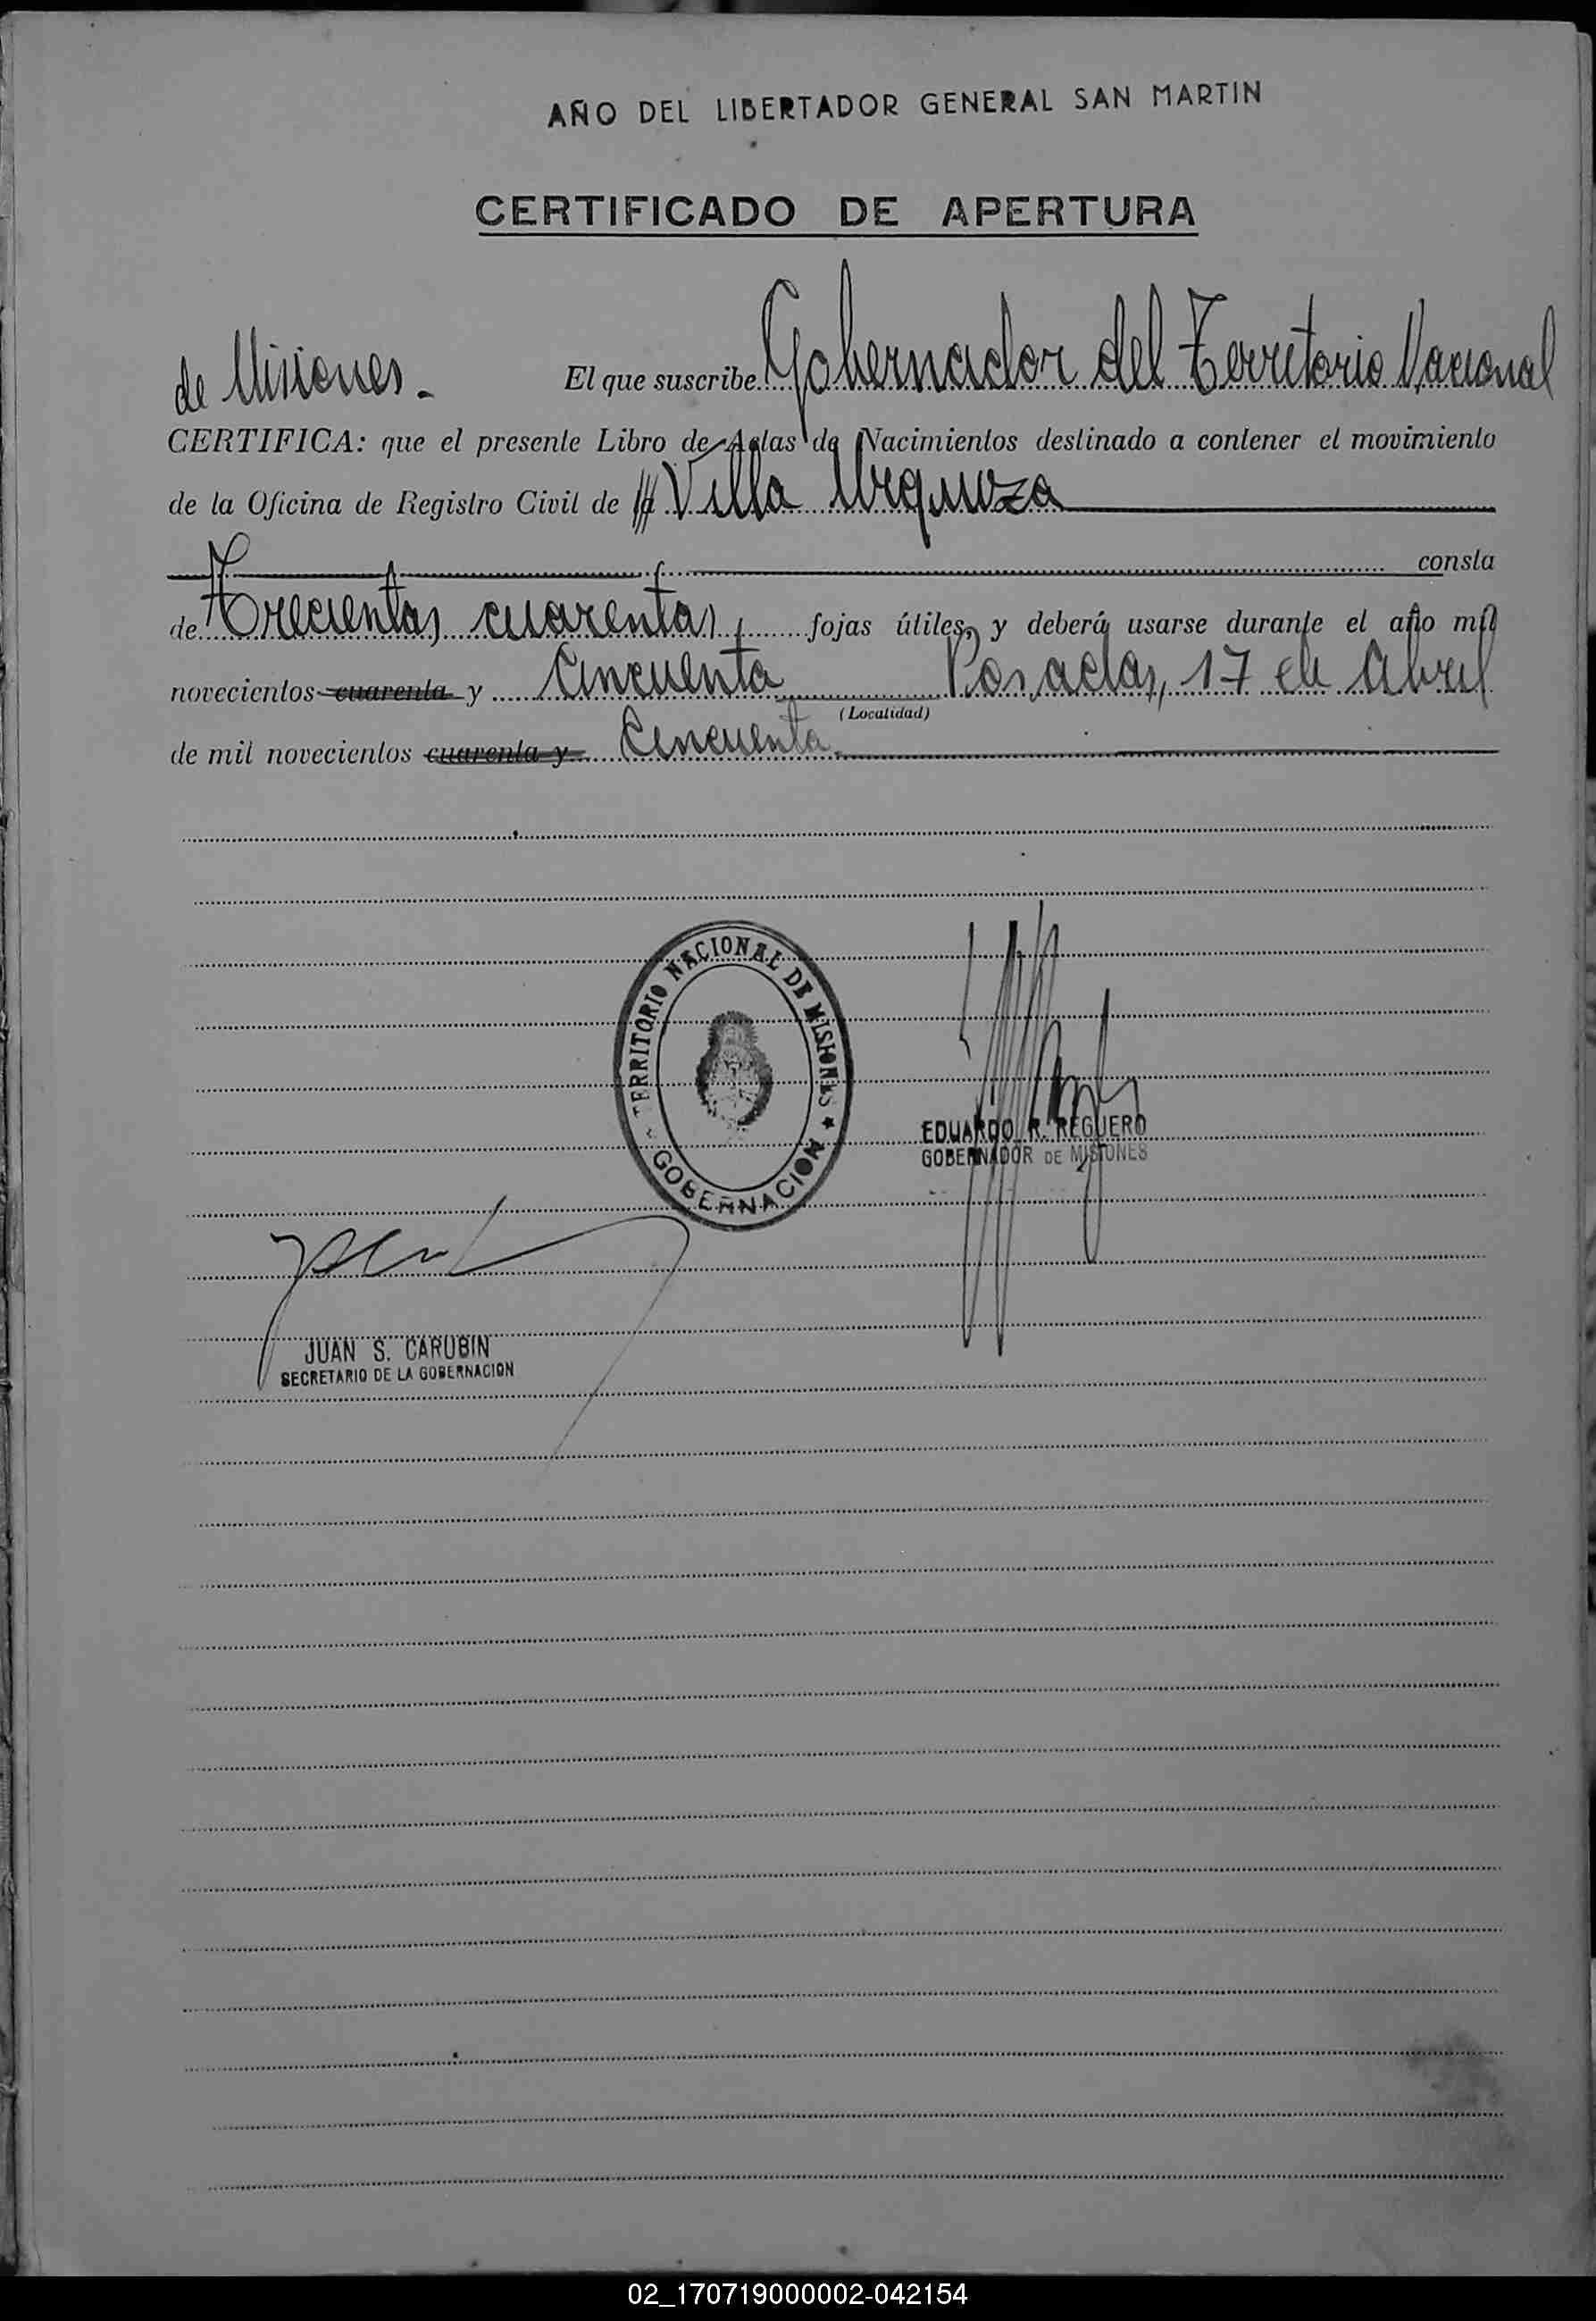 AÑO DEL LIBERTADOR GENERAL SAN MARTIN
CERTIFICADO DE APERTURA
de Misiones. El que suscribe Gobernador del Territorio Nacional
CERTIFICA: que el presente Libro de Actas de Nacimientos destinado a contener el movimiento
de la Oficina de Registro Civil de la Villa Urquiza
consta
de Trecientas cuarentas fojas útiles, y deberá usarse durante el año mil
novecientos cuarenta y Cincuenta Posadas, 17 de Abril
(Localidad)
de mil novecientos cuarenta y Cincuenta.
TERRITORIO NACIONAL DE MISIONES
GOBERNACION
EDUARDO R. REGUERO
GOBERNADOR DE MISIONES
JUAN S. CARUBIN
SECRETARIO DE LA GOBERNACION
02_170719000002-042154